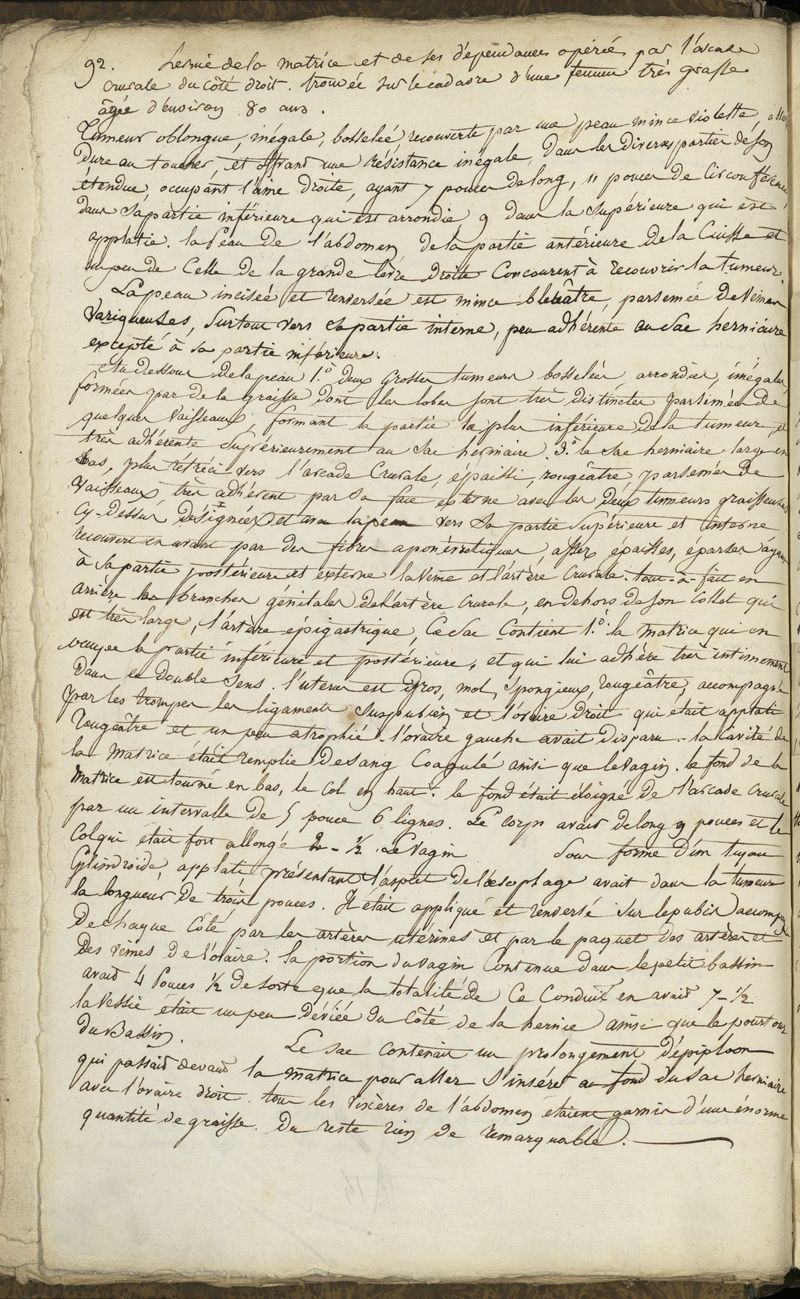 92. hernie de la matrice et de ses dépendances opérée par l'arcade
crurale du côté droit. trouvée sur le cadavre d'une femme très grasse
âgée d'environ 80 ans.
Tumeur oblongue, inégale, bosselée recouverte par une peau mince violette,
dure au toucher, et offrant une résistance inégale, dans les diverses partie de son
étendue, occupant l'aine droite, ayant 7 pouces de long, 11 pouces de circonférence
dans sa partie inférieure qui est arrondie 9 dans la supérieure qui est
applatie. la peau de l'abdomen de la partie antérieure de la Cuisse et
un peu de Celle de la grande lèvre droite Concourent à recouvrir la tumeur.
La peau incisée et renversée est mince bleuâtre, parsemée de Veines
Variqueuses, surtout vers sa partie interne, peu adhérente au sac herniaire
excepté à sa partie inférieure.
Au dessous de la peau 1.° deux grosses tumeurs bosselées, arrondies, inégales,
formées par de la graisse dont les lobes sont très distincts parsemées de
quelques Vaisseaux, formant la partie la plus inférieure de la tumeur, et
très adhérente supérieurement au sac herniaire. 3.° le sac herniaire large en
bas, plus rétréci vers l'arcade Crurale, épaissi, rougeâtre, parsemée de
Vaisseaux très adhérent par sa face externe avec les deux tumeurs graisseuses
Cy-dessus désignées et avec la peau vers sa partie supérieure et interne
recouvert en avant par des fibres aponévrotiques, assez épaisses, éparses ayant
à sa partie postérieure et externe la Veine et l'artère Crurale. tout-à-fait en
arrière les branches génitales de l'artère Crurale, en dehors de son Collet qui
est très large, l'artère épigastrique, Ce sac Contient 1.° la matrice qui en
occupe la partie inférieure et postérieure, et qui lui adhère très intimement
dans ce double sens. l'uterus est gros, mol, spongieux, rougeâtre, accompagné
par les trompes les ligaments suspubien et l'ovaire droit qui était applati
rougeâtre et un peu atrophié. l'ovaire gauche avait disparu. la Cavité de
la Matrice était remplie de sang Coagulé ainsi que le Vagin. le fond de la
Matrice est tourné en bas, le Col en haut. le fond était éloigné de l'arcade Crurale
par un intervalle de 5 pouce 6 lignes. Le Corps avait de long 9 pouces et le
Col qui était fort allongé 2-1/2. Le Vagin sous forme d'un tuyau
Cylindroïde, applati présentant l'aspect de l'œsophage avait dans la tumeur
la longueur de trois pouces. Il était appliqué et renversé sur le pubis accompagné
de chaque Côté par les artères utérines et par le paquet des artères et
des veines de l'ovaire. la portion du vagin Contenue dans le petit bassin
avait 4 Pouces 1/2 de sorte que la totalité de Ce Conduit en avait 7-1/2
la Vessie était un peu déviée du Côté de la hernie ainsi que le pourtour
du Bassin.
Le sac Contenait un prolongement d'épiploon
qui passait devant la matrice pour aller s'insérer au fond du sac herniaire
avec l'ovaire droit. tous les viscères de l'abdomen étaient garnis d'une énorme
quantité de graisse. Du reste rien de remarquable.